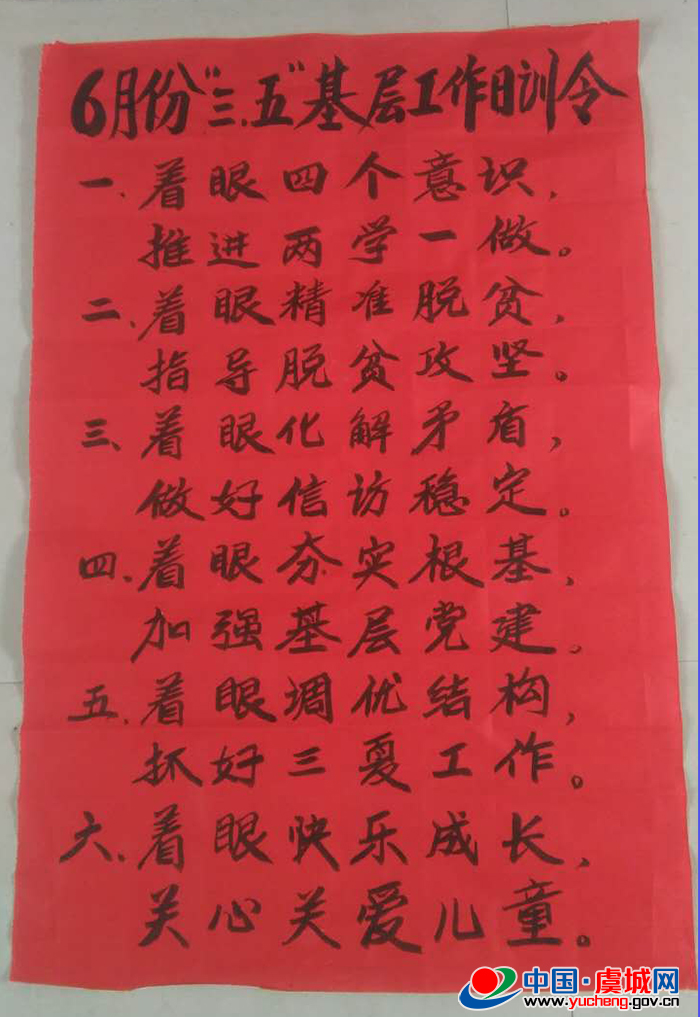 6月份“三.五”基层工作日训令
一、着眼四个意识,
推进两学一做。
二、着眼精准脱贫,
指导脱贫攻坚。
三、着眼化解矛盾,
做好信访稳定。
四、着眼夯实根基,
加强基层党建。
五、着眼调优结构,
抓好三夏工作。
六、着眼快乐成长,
关心关爱儿童。
中国·虞城网
www.yucheng.gov.cn